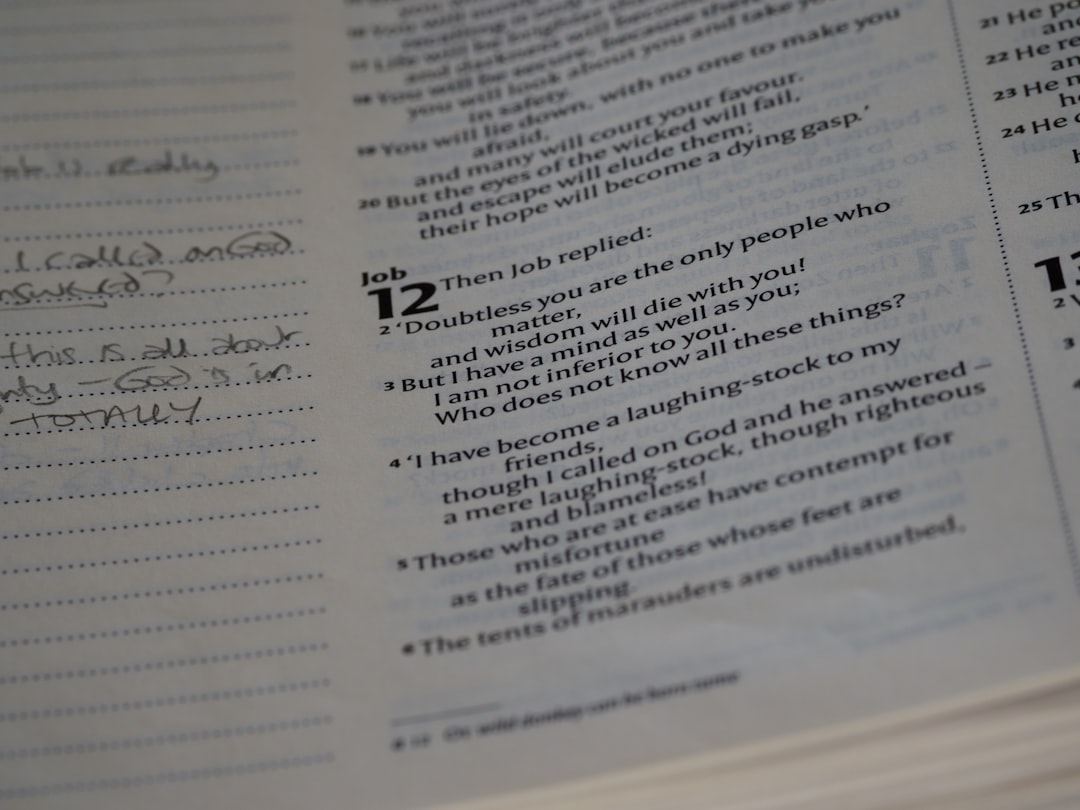 really
I called on God
answered?
this is all about
– God is in
TOTALLY
and darkness will become
You will be secure, because there
you will look about you and take
in safety.
19 You will lie down, with no one to make you
afraid,
and many will court your favour.
20 But the eyes of the wicked will fail,
and escape will elude them;
their hope will become a dying gasp.’
Job
12 Then Job replied:
2 ‘Doubtless you are the only people who
matter,
and wisdom will die with you!
3 But I have a mind as well as you;
I am not inferior to you.
Who does not know all these things?
4 ‘I have become a laughing-stock to my
friends,
though I called on God and he answered –
a mere laughing-stock, though righteous
and blameless!
5 Those who are at ease have contempt for
misfortune
as the fate of those whose feet are
slipping.
6 The tents of marauders are undisturbed,
Or wild donkey can be born tame
21 He
22 He
23 He
24 He
25
13
2
3
4